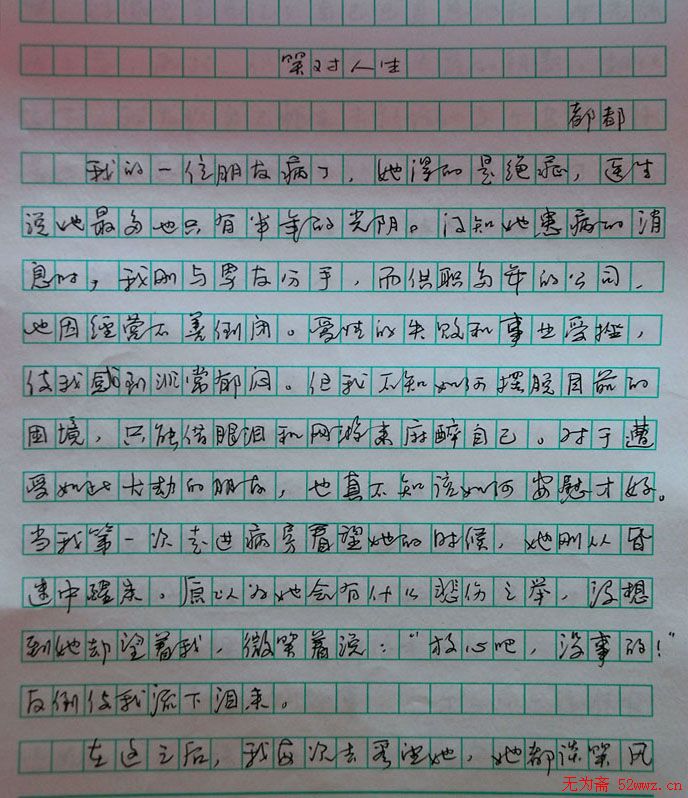 笑对人生
都都
我的一位朋友病了，她得的是绝症，医生
说她最多也只有半年的光阴。得知她患病的消
息时，我刚与男友分手，而供职多年的公司，
也因经营不善倒闭。爱情的失败和事业受挫，
使我感到非常郁闷。但我不知如何摆脱目前的
困境，只能借眼泪和网游来麻醉自己。对于遭
受如此大劫的朋友，也真不知该如何安慰才好。
当我第一次走进病房看望她的时候，她刚从昏
迷中醒来。原以为她会有什么悲伤之举，没想
到她却望着我，微笑着说：“放心吧，没事的！”
反倒使我流下泪来。
在这之后，我每次去看望她，她都谈笑风
无为斋 52wwz.cn